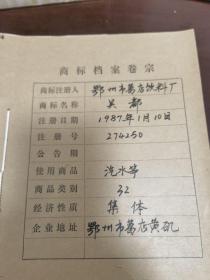 商标档案卷宗
商标注册人 鄂州市葛店饮料厂
商标名称 吴都
注册日期 1987年1月10日
注册号 274250
公告期
使用商品 汽水等
商品类别 32
经济性质 集体
企业地址 鄂州市葛店黄矶